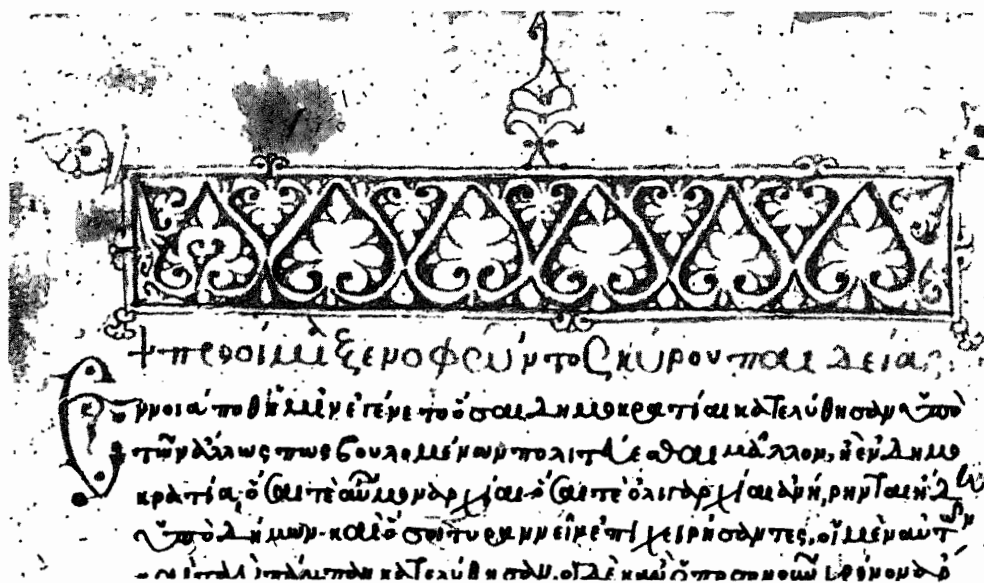 + προοίμιον ξενοφῶντος κύρου παιδείας:
ἔννοιά ποθ' ἡμῖν ἐγένετο ὅσαι δημοκρατίαι κατελύθησαν ὑπὸ
τῶν ἄλλως πως βουλομένων πολιτεύεσθαι μᾶλλον, ἢ ἐν δημο
κρατίᾳ· ὅσαι τε αὖ μοναρχίαι· ὅσαι τε ὀλιγαρχίαι ἀνῄρηνται ἤδη
ὑπὸ δήμων· καὶ ὅσοι τυραννεῖν ἐπιχειρήσαντες, οἱ μὲν αὐτῶν
κατελύθησαν, οἱ δὲ κἂν ὁποσονοῦν χρόνον ἄρ